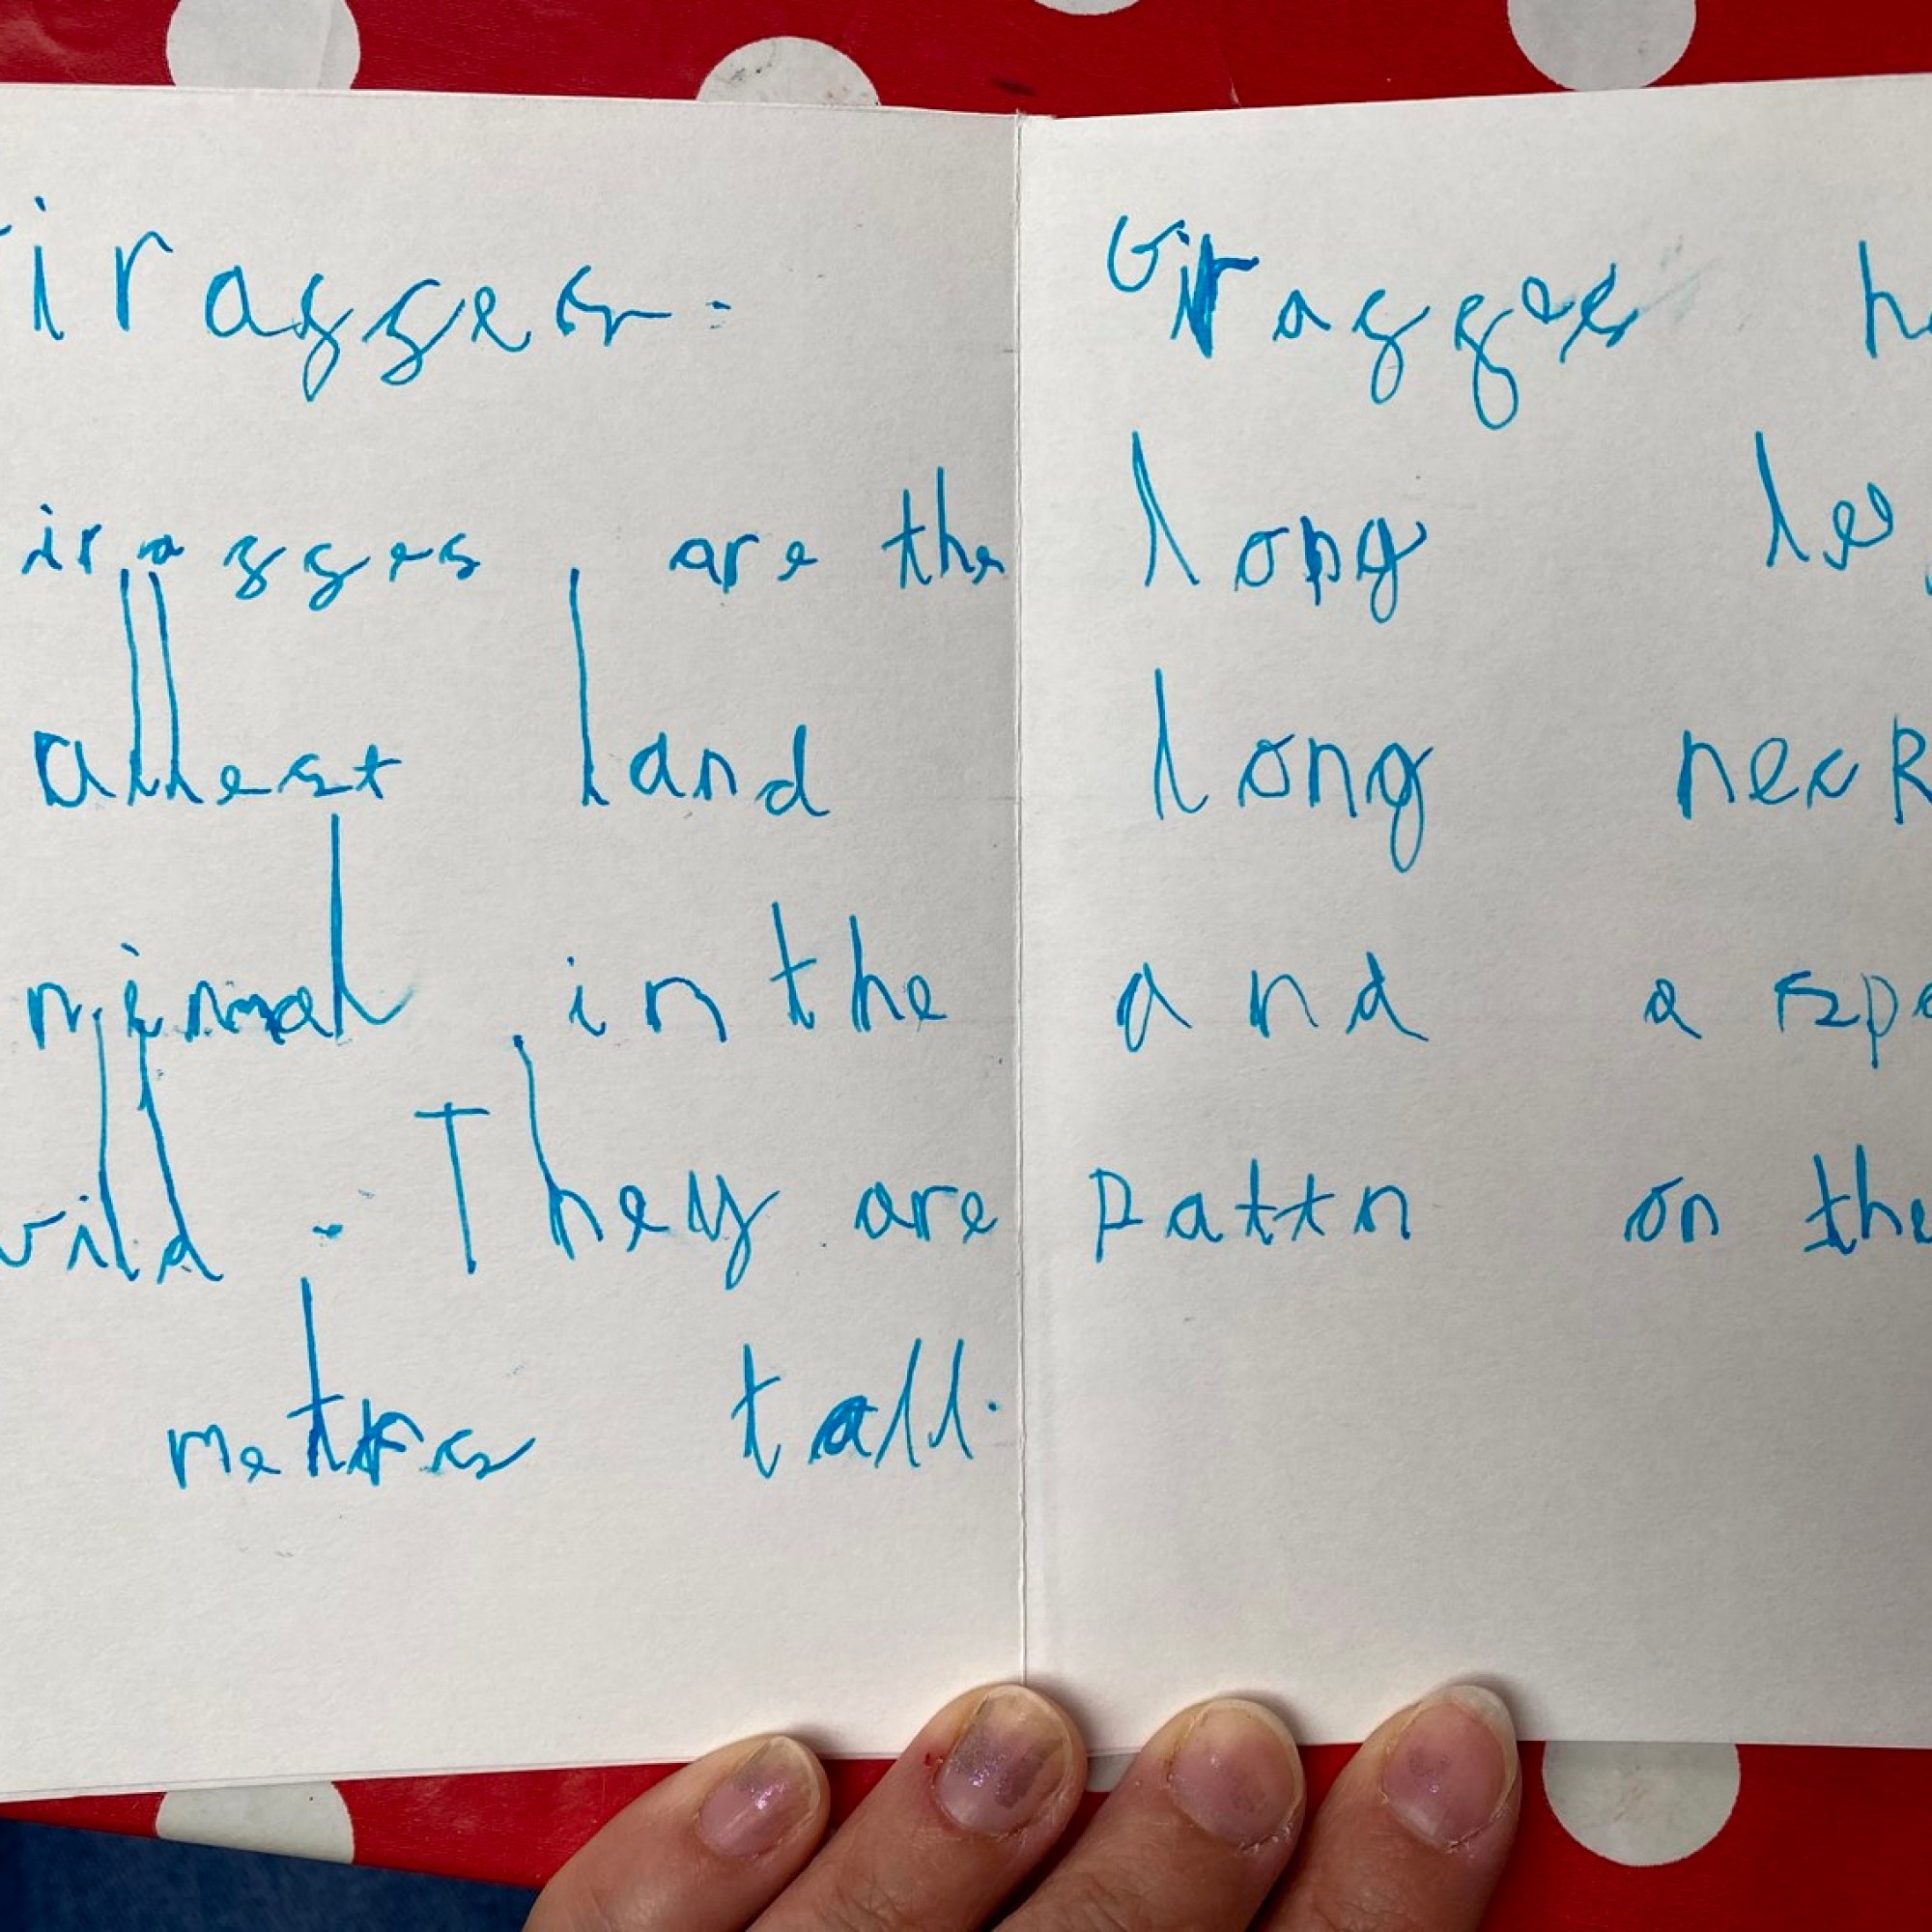 iraffes.
iraffes are the
allest land
nimal in the
wild. They are
metrs tall.
Giraffes h
long le
long neck
and a spo
pattn on the